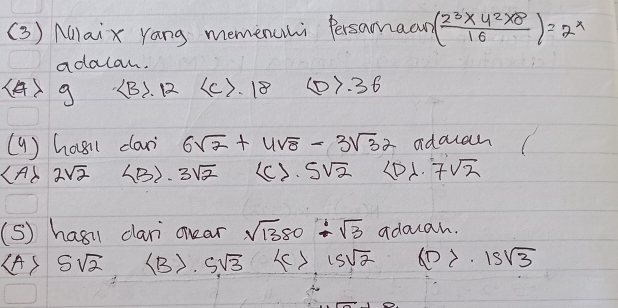 (3) Nilai x yang memenuhi Persamaan (2³×4²×8/16) = 2ˣ
adalah.
<A> 9 <B>. 12 <C>. 18 <D>. 36
(4) hasil dari 6√2 + 4√8 - 3√32 adalah (
<A> 2√2 <B>. 3√2 <C>. 5√2 <D>. 7√2
(5) hasil dari akar √1350 ÷ √3 adalah.
<A> 5√2 <B>. 5√3 <C> 15√2 <D>. 15√3